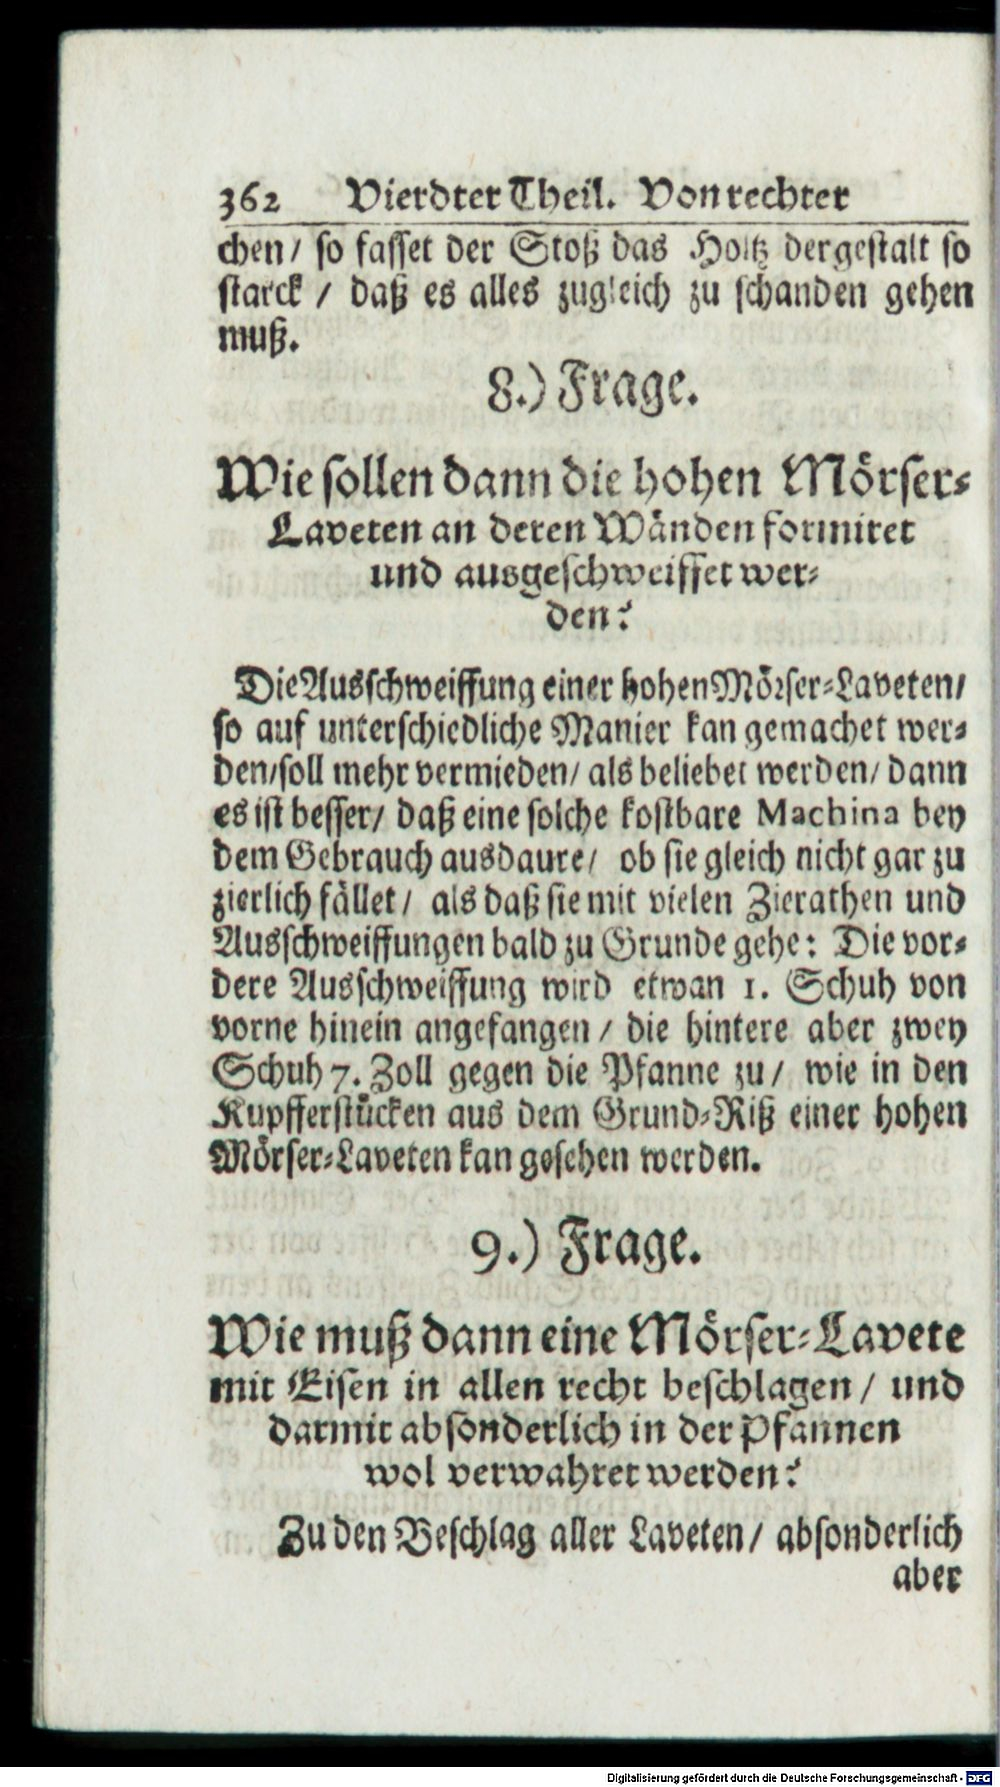 362 Vierdter Theil. Von rechter
chen/ so fasset der Stoß das Holtz dergestalt so
starck / daß es alles zugleich zu schanden gehen
muß.
8.) Frage.
Wie sollen dann die hohen Mörser-
Laveten an deren Wänden formiret
und ausgeschweiffet wer-
den?
Die Ausschweiffung einer hohen Mörser-Laveten/
so auf unterschiedliche Manier kan gemachet wer-
den/soll mehr vermieden/ als beliebet werden/ dann
es ist besser/ daß eine solche kostbare Machina bey
dem Gebrauch ausdaure/ ob sie gleich nicht gar zu
zierlich fället/ als daß sie mit vielen Zierathen und
Ausschweiffungen bald zu Grunde gehe: Die vor-
dere Ausschweiffung wird etwan 1. Schuh von
vorne hinein angefangen / die hintere aber zwey
Schuh 7. Zoll gegen die Pfanne zu/ wie in den
Kupfferstücken aus dem Grund-Riß einer hohen
Mörser-Laveten kan gesehen werden.
9.) Frage.
Wie muß dann eine Mörser-Lavete
mit Eisen in allen recht beschlagen / und
darmit absonderlich in der Pfannen
wol verwahret werden?
Zu den Beschlag aller Laveten/ absonderlich
aber
Digitalisierung gefördert durch die Deutsche Forschungsgemeinschaft - DFG